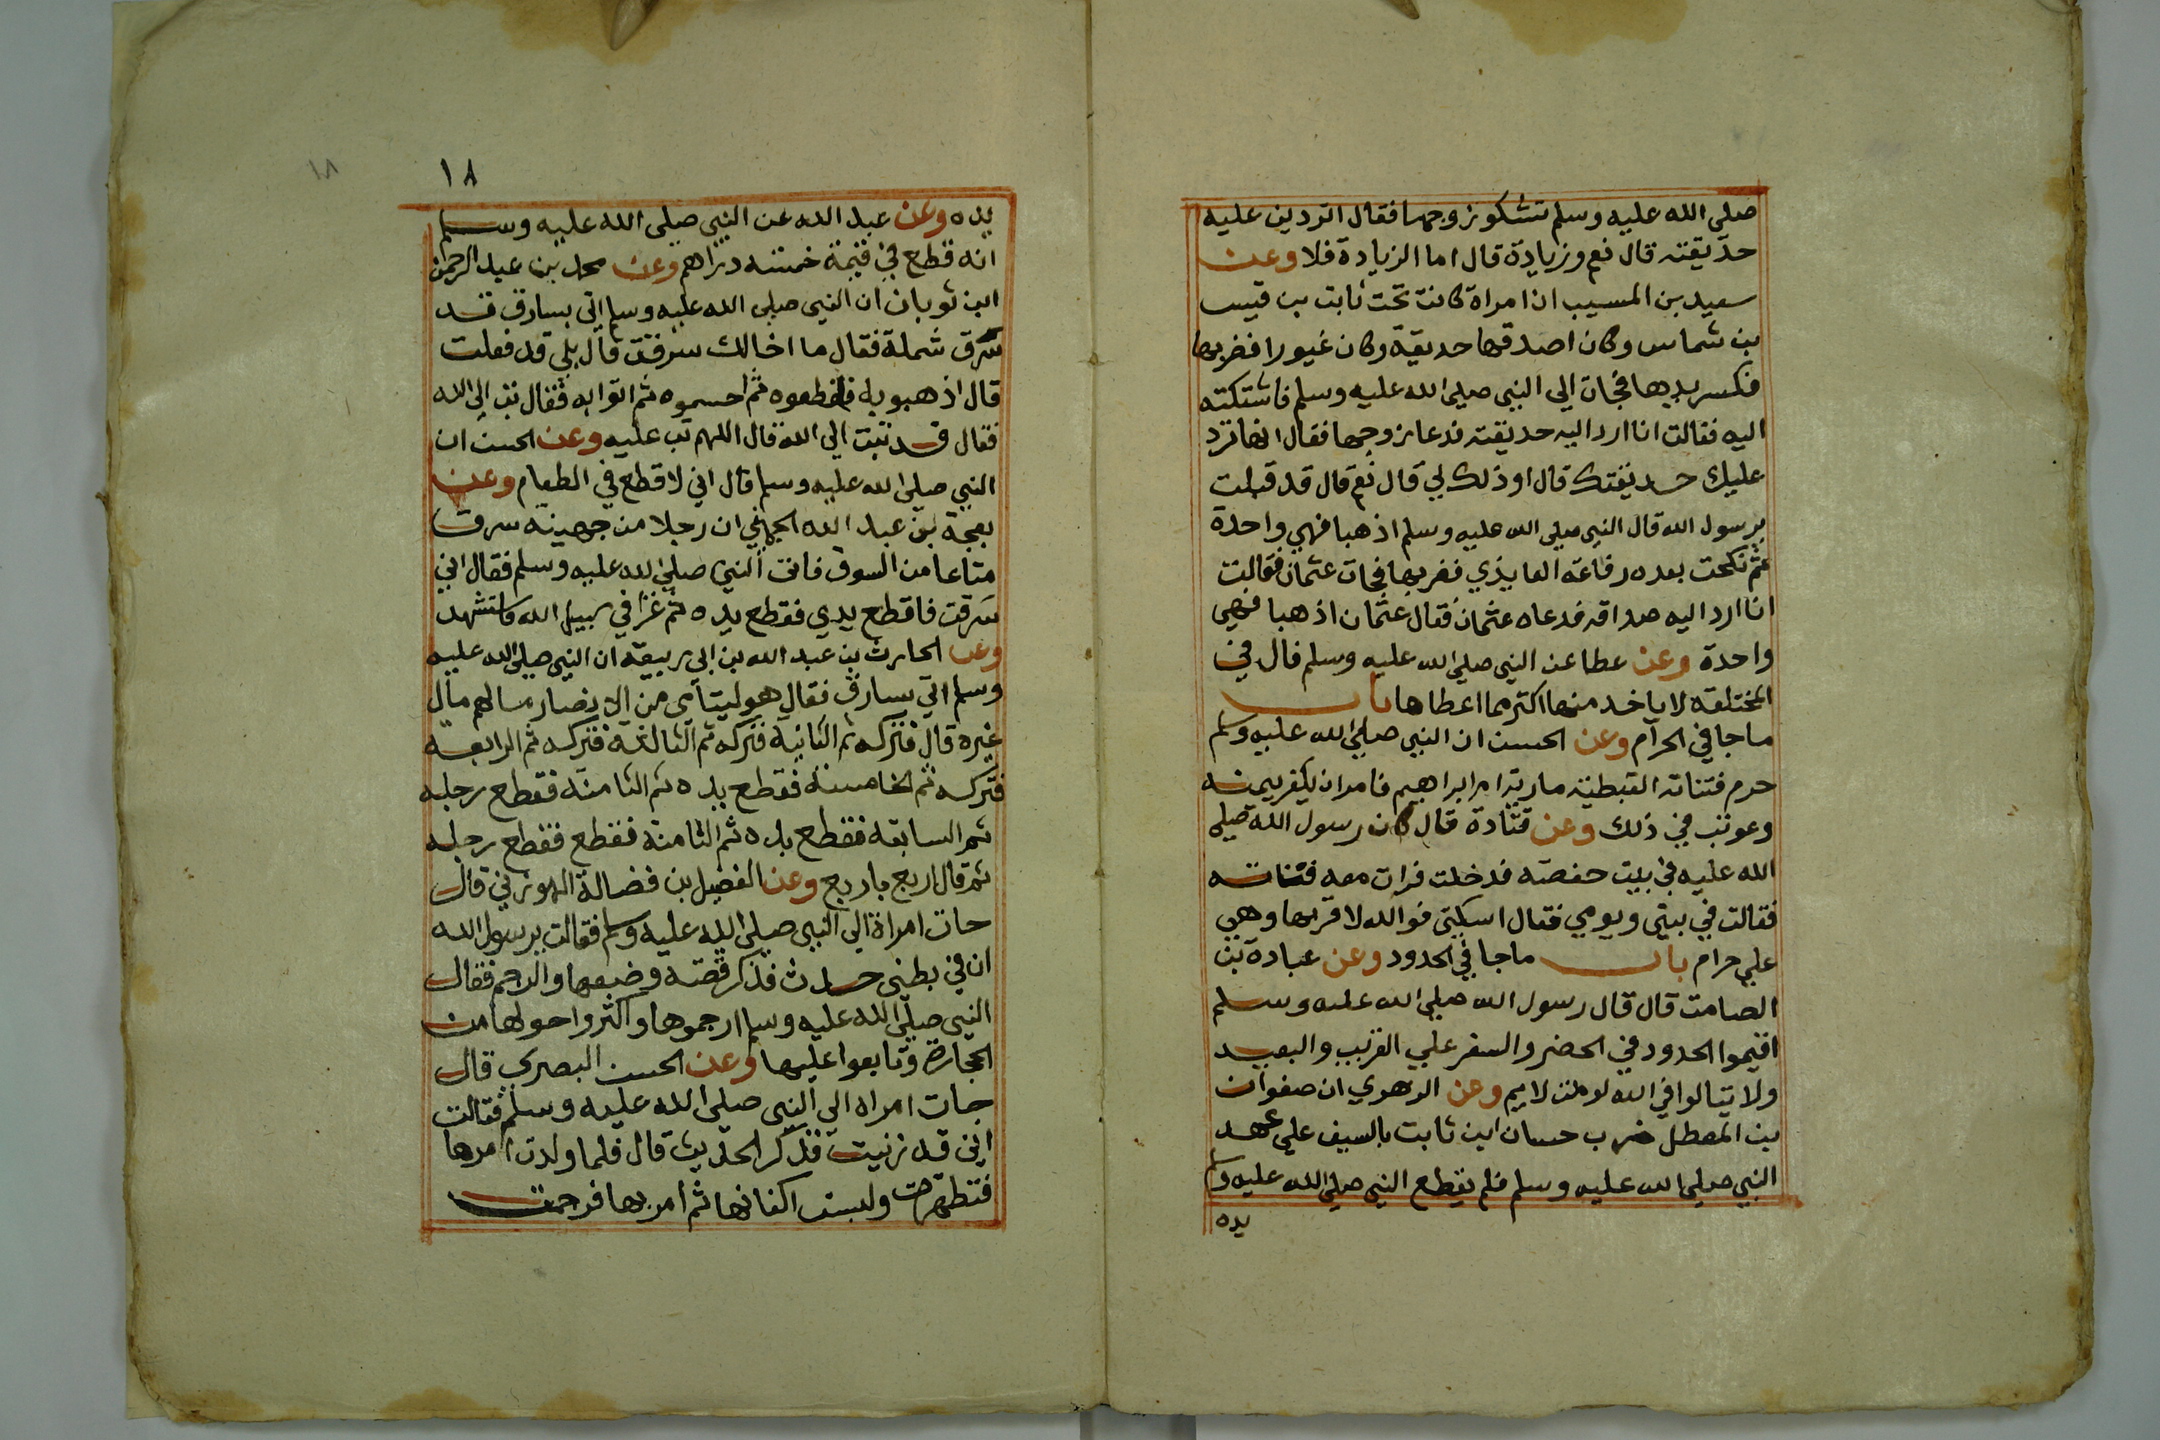 صلى الله عليه وسلم تشكو زوجها فقال اتردين عليه
حديقته قال نعم وزيادة قال اما الزيادة فلا وعن
سعيد بن المسيب ان امراة كانت تحت ثابت بن قيس
بن شماس وكان اصدقها حديقة وكان غيورا فضربها
فكسر يديها فجات الى النبي صلى الله عليه وسلم فاشتكته
اليه فقالت انا ارد اليه حديقته فدعا زوجها فقال انها ترد
عليك حديقتك قال او ذلك لي قال نعم قال قد قبلت
يرسول الله قال النبي صلى الله عليه وسلم اذهبا فهي واحدة
ثم نكحت بعده رفاعة العايذي فضربها فجات عثمان فقالت
انا ارد اليه صداقه فدعاه عثمان فقال عثمان اذهبا فهي
واحدة وعن عطا عن النبي صلى الله عليه وسلم قال في
المختلعة لا ياخد منها اكثر مما اعطاها باب
ما جا في الحرام وعن الحسن ان النبي صلى الله عليه وسلم
حرم فتاته القبطية مارية ام ابراهيم فامر ان يكفر يمينه
وعوتب في ذلك وعن قتادة قال كان رسول الله صلى
الله عليه في بيت حفصة فدخلت فرات معه فتاته
فقالت في بيتي ويومي فقال اسكتي فوالله لا قربها وهي
علي حرام باب ما جا في الحدود وعن عبادة بن
الصامت قال قال رسول الله صلى الله عليه وسلم
اقيموا الحدود في الحضر والسفر علي القريب والبعيد
ولا تبالوا في الله لومت لايم وعن الزهوي ان صفوان
بن المعطل ضرب حسان ابن ثابت بالسيف على عهد
النبي صلى الله عليه وسلم فلم يقطع النبي صلى الله عليه وسلم
يده
١٨
١٨
يده وعن عبد الله عن النبي صلى الله عليه وسلم
انه قطع في قيمة خمسه دراهم وعن محمد بن عبد الرحمن
ابن ثوبان ان النبي صلى الله عليه وسلم اتي بسارق قد
سرق شملة فقال ما اخالك سرقت قال بلي قد فعلت
قال اذهبو به فاقطعوه ثم احسموه ثم اتوا به فقال تب الى الله
فقال قد تبت الى الله قال اللهم تب عليه وعن الحسن ان
النبي صلى الله عليه وسلم قال اني لا قطع في الطعام وعن
بعجة بن عبد الله الجهني ان رجلا من جهينة سرق
متاعا من السوق فاتى النبي صلى الله عليه وسلم فقال اني
سرقت فاقطع يدي فقطع يده ثم غزا في سبيل الله فاستشهد
وعن الحارث بن عبد الله بن ابي ربيعة ان النبي صلى الله عليه
وسلم اتي بسارق فقال هو ليتامى من الانصار مالهم مال
غيره قال فتركه ثم الثانية فتركه ثم الثالثة فتركه ثم الرابعة
فتركه ثم الخامسة فقطع يده ثم الثامنة فقطع رجله
ثم السابعة فقطع يده ثم الثامنة فقطع فقطع رجله
ثم قال اربع باربع وعن الفضيل بن فضالة الهوزني قال
جات امراة الى النبي صلى الله عليه وسلم فقالت يرسول الله
ان في بطني حدث فذكر قصة وضعها والرجم فقال
النبي صلى الله عليه وسلم ارجموها واكثروا حولها من
الحجارة وتابعوا عليها وعن الحسن البصرى قال
جات امراه الى النبي صلى الله عليه وسلم فقالت
اني قد زنيت فذكر الحديث قال فلما ولدت امرها
فتطهرت ولبست اكفانها ثم امر بها فرجمت